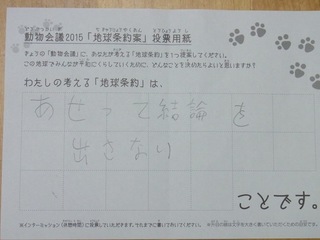 動物会議2015「地球条約案」投票用紙
きょうの「動物会議」に、あなたが考える「地球条約」を1つ提案してください。
この地球でみんなが平和にくらしていくために、どんなことを決めたらよいと思いますか?
わたしの考える「地球条約」は、
あせって結論を
出さない
ことです。
※インターミッション(休憩時間)に投票していただきます。それまでに書いておいてください。